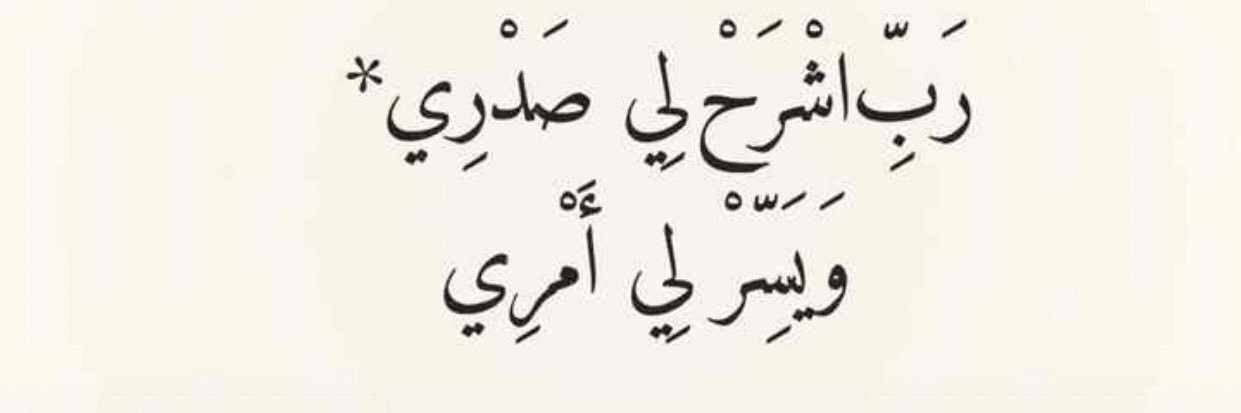 رَبِّ اشْرَحْ لِي صَدْرِي*
وَيَسِّرْ لِي أَمْرِي